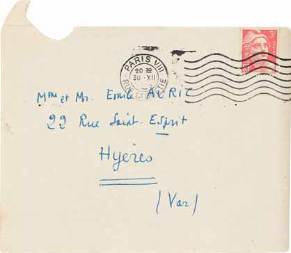 PARIS VIII
20 30
30 - XII
Mme et Mr. Emile AURIC
22 Rue Saint. Esprit
Hyères
(Var)